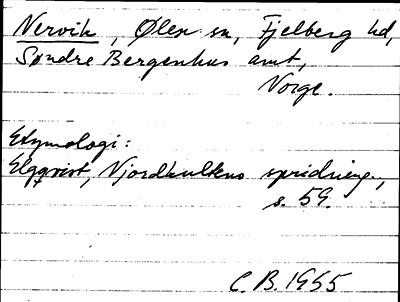 Nervik, Ølen sn, Fjelberg hd,
Søndre Bergenhus amt,
Norge.
Etymologi:
Elgqvist, Njordkultens spridning,
s. 59.
C. B. 1955